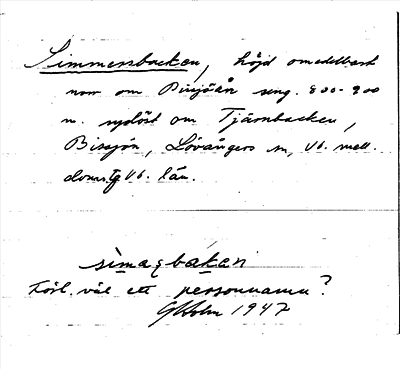 Simmersbacken, höjd omedelbart
norr om Bissjöån ung. 800-900
m. sydöst om Tjärnbacken,
Bissjön, Lövångers sn, Vb. mell.
doms, Vb. län.
sima ̧ bakan
Förl. väl ett personnamn?
GHolm 1947